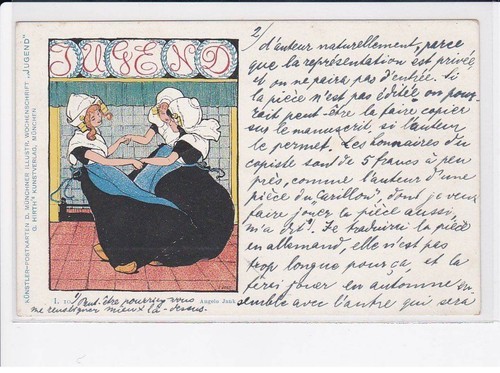 KÜNSTLER-POSTKARTEN D. MÜNCHNER ILLUSTR. WOCHENSCHRIFT „JUGEND“
G. HIRTH's KUNSTVERLAG, MÜNCHEN
JUGEND
I. 10.
Angelo Jank
Peut-être pourriez-vous
me renseigner mieux là-dessus.
2/
d'auteur naturellement, parce
que la représentation est privée
et on ne paira pas d'entrée. Si
la pièce n'est pas éditée on pour-
rait peut-être la faire copier
sur le manuscrit, si l'auteur
le permet. Les honnaires du
copiste sont de 5 francs à peu
près, comme l'auteur d'une
pièce du „Carillon“, dont je veux
faire jouer la pièce aussi,
m'a écrit. Je traduirai la pièce
en allemand, elle n'est pas
trop longue pour ça, et la
ferai jouer en automne en-
semble avec l'autre qui sera